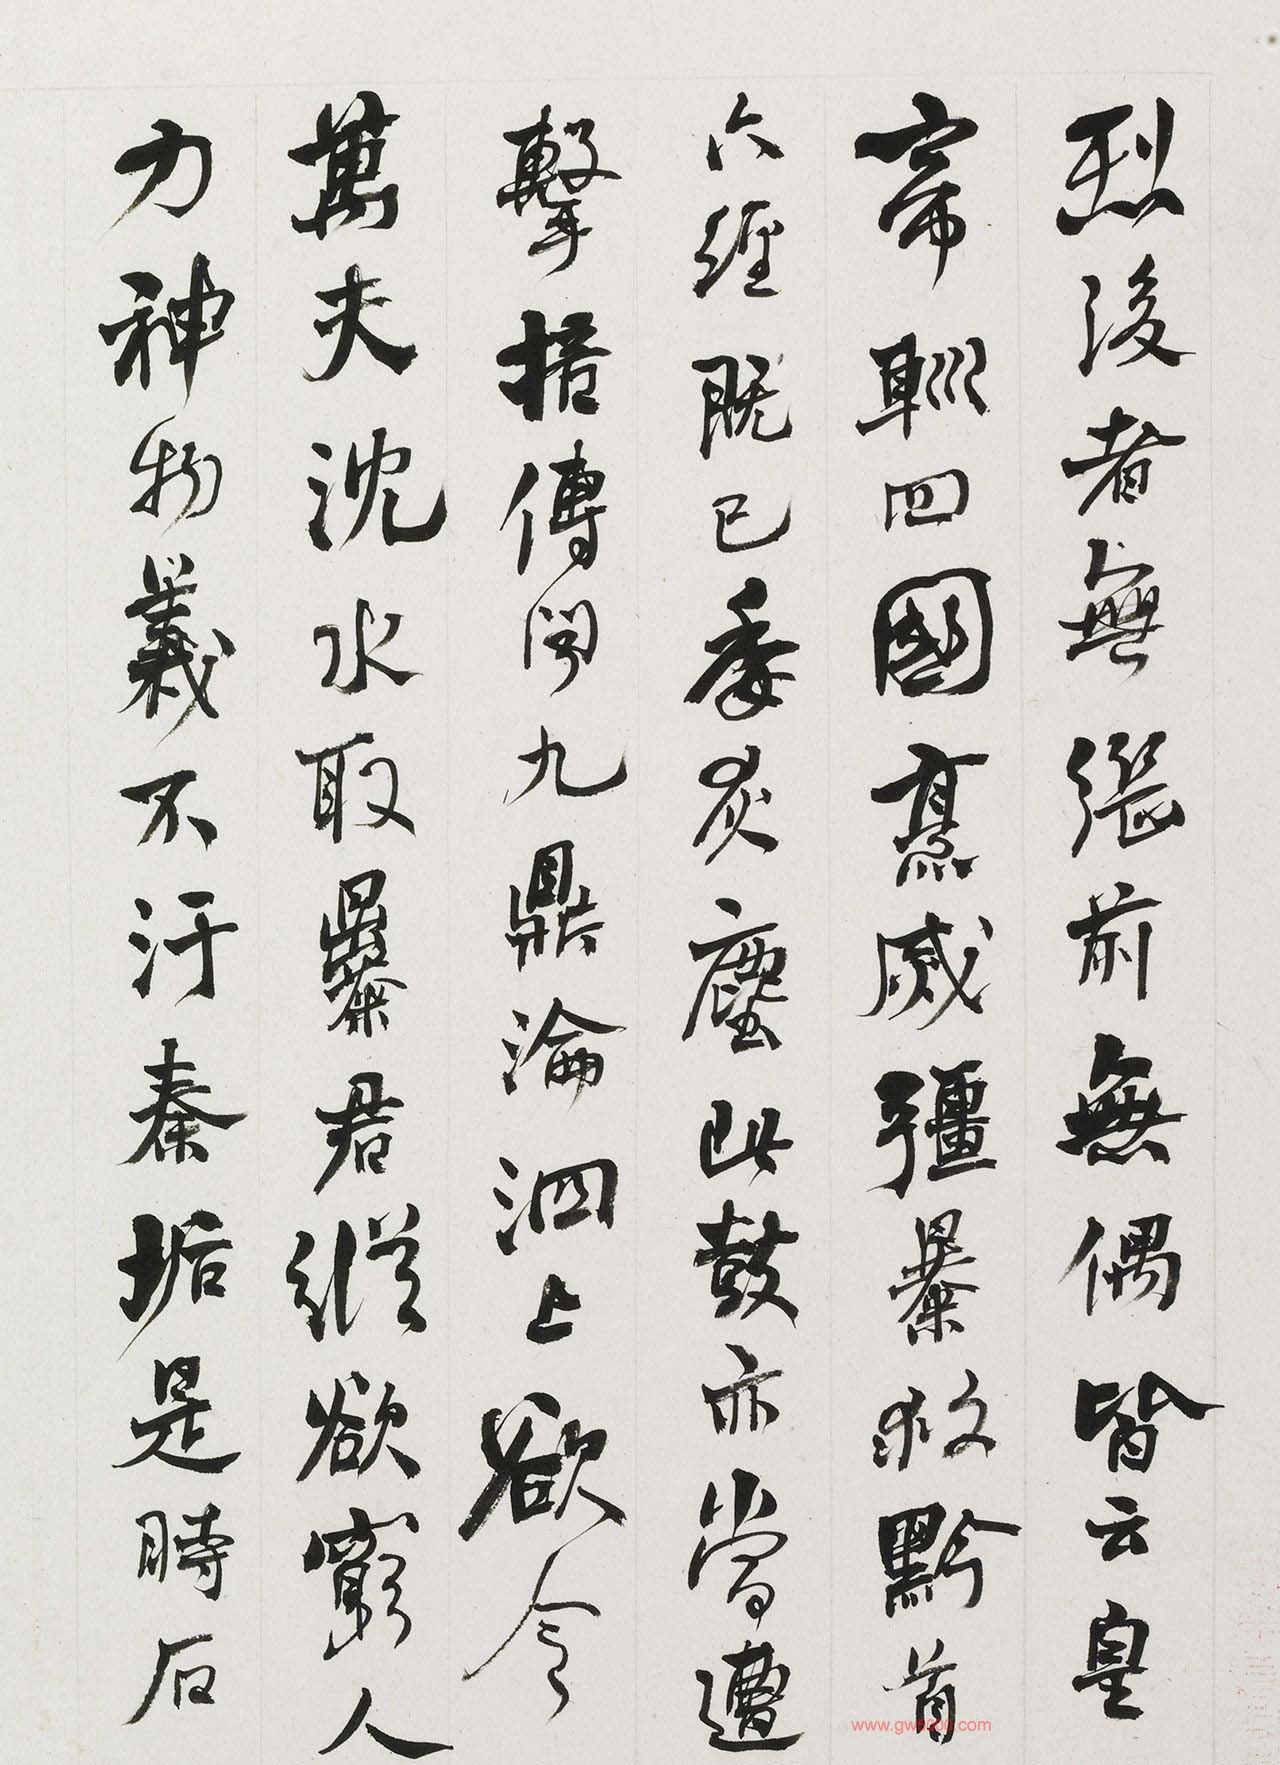 烈後者無繼前無偶皆云皇
帝巡四國烹滅彊暴救黔首
六經既已委灰塵此鼓亦當遭
擊掊傳聞九鼎淪泗上欲令
萬夫沈水取暴君縱欲窮人
力神物義不汙秦垢是時石